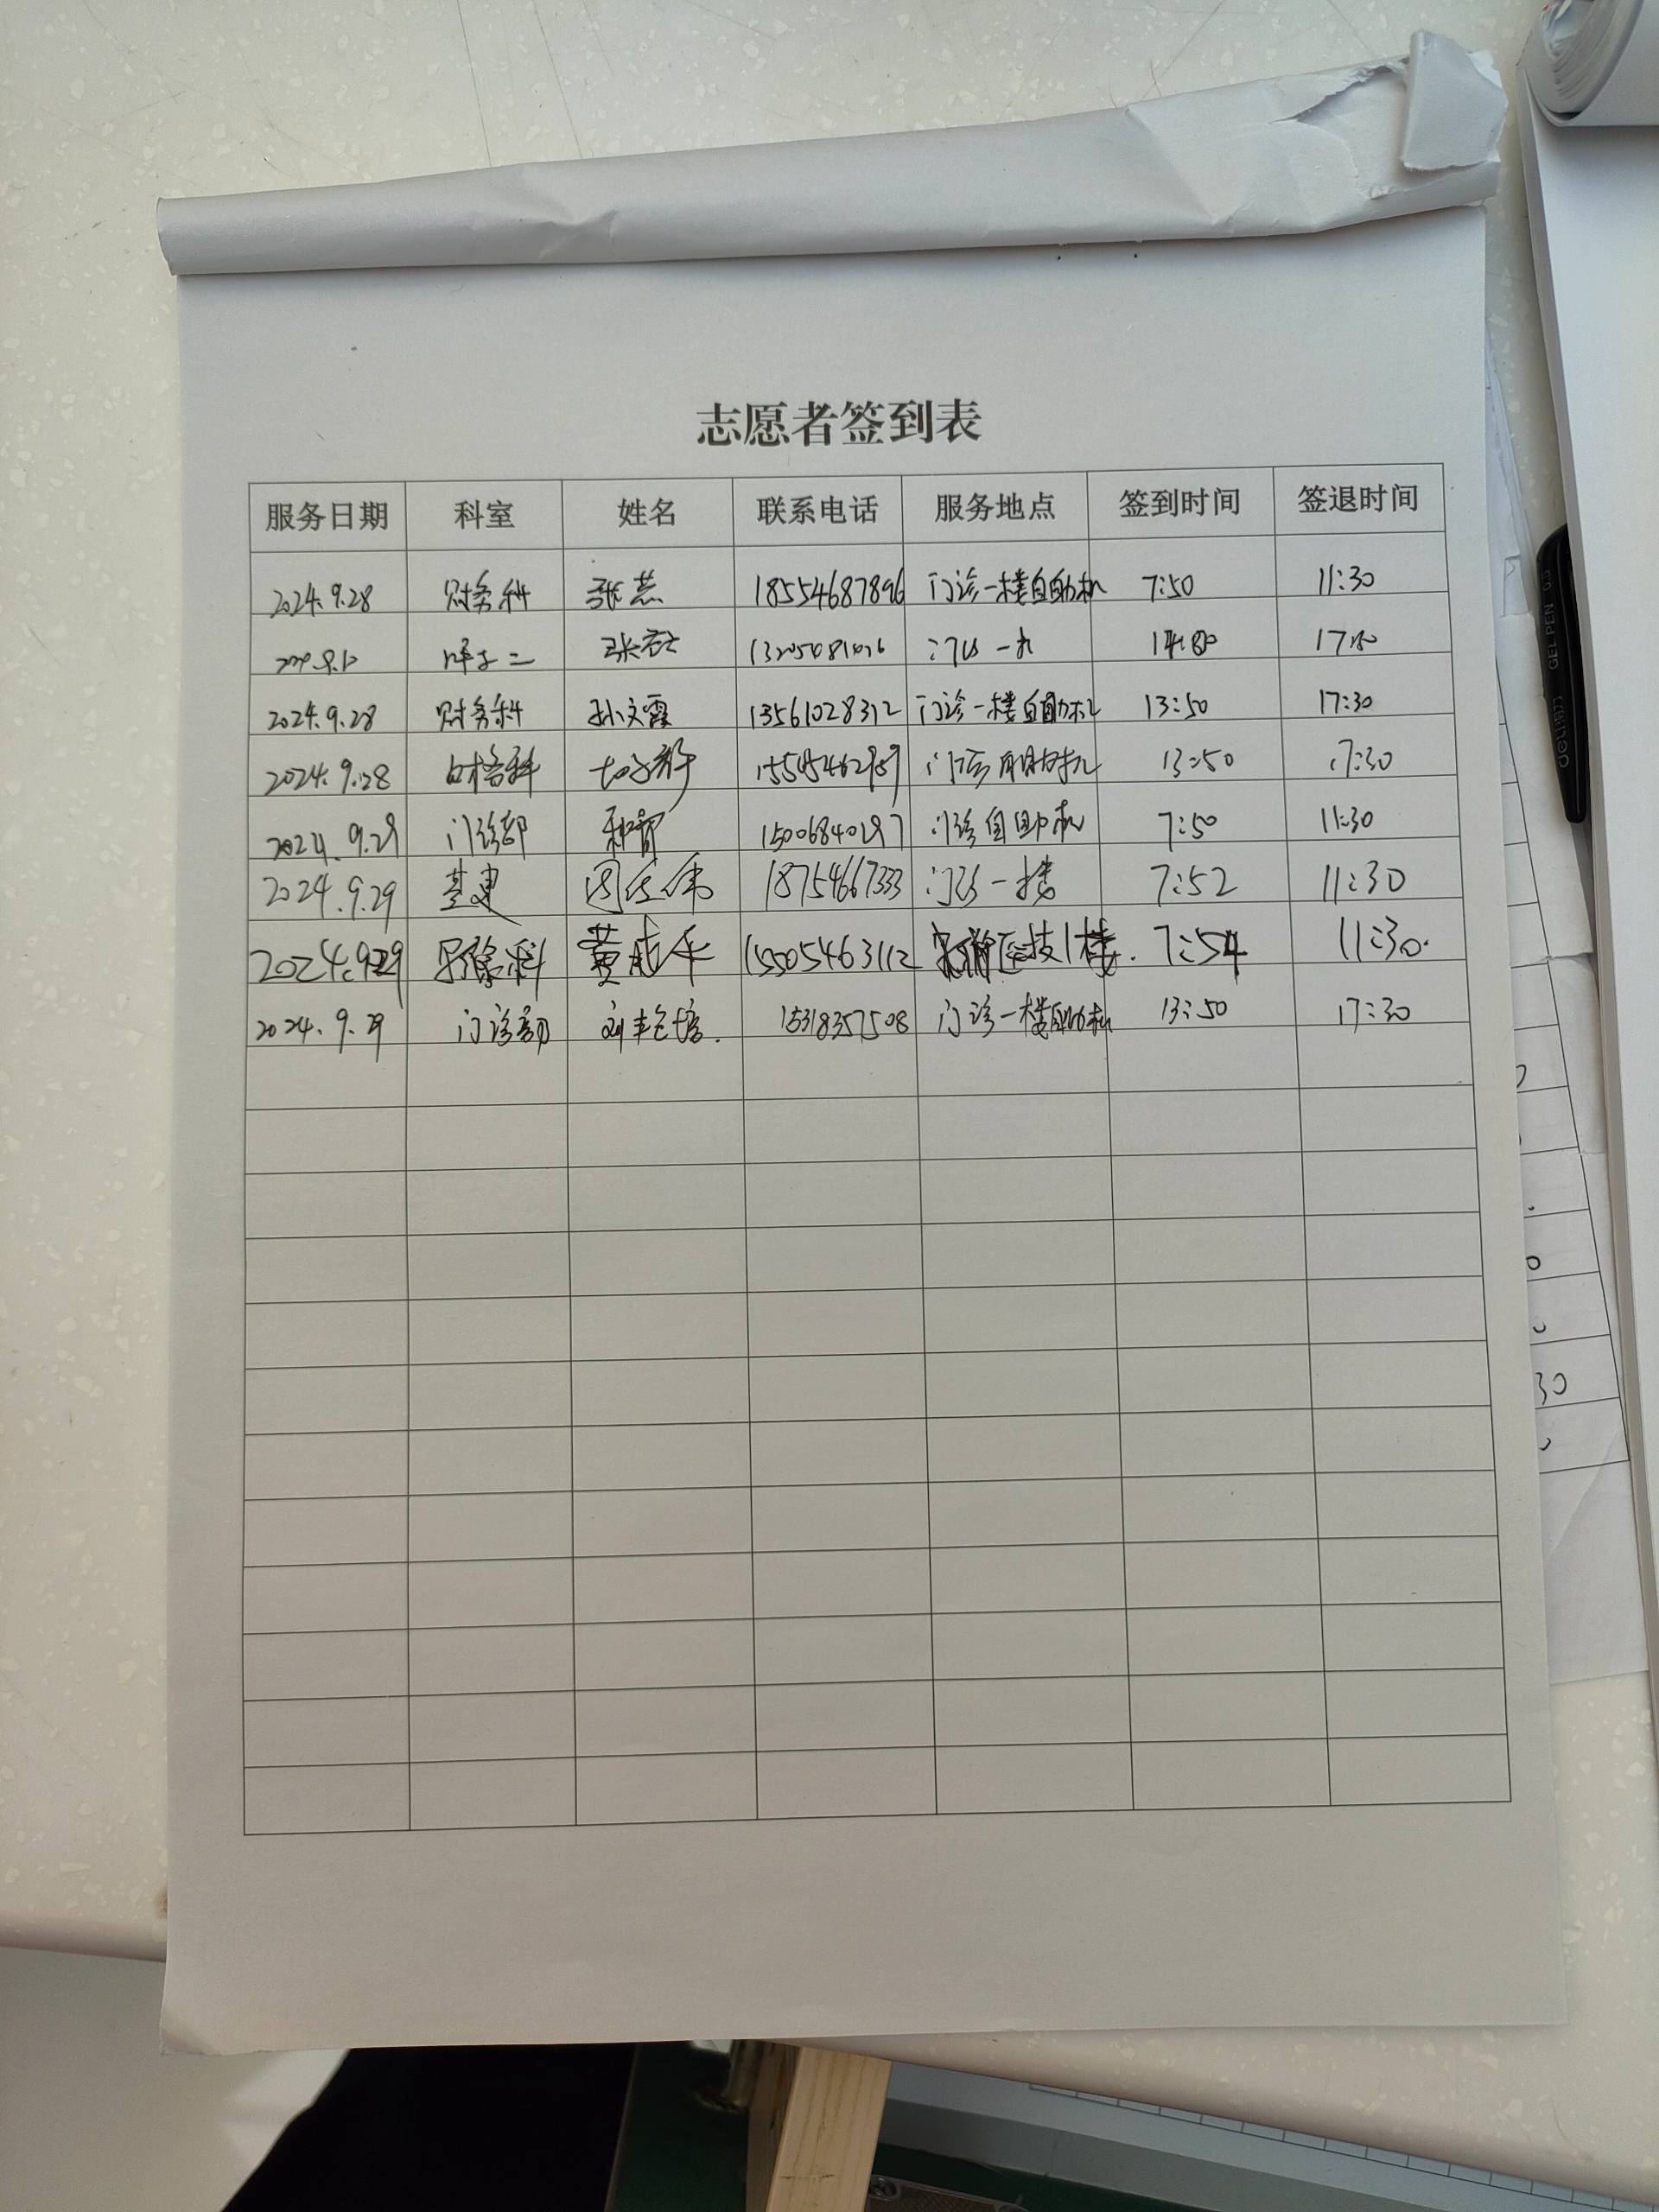 志愿者签到表
服务日期 科室 姓名 联系电话 服务地点 签到时间 签退时间
2024.9.28 财务科 张燕 18554687896 门诊一楼自助机 7:50 11:30
二 1320 一
2024.9.28 财务科 孙文霞 13561028312 门诊一楼自助机 13:50 17:30
2024.9.28 门诊自助机 13:50 17:30
2024.9.29 门诊部 15006840297 门诊自助机 7:50 11:30
2024.9.29 基建 18754667333 门诊一楼 7:52 11:30
2024.9.29 影像科 黄 15505463112 医技1楼 7:54 11:30
2024.9.29 门诊部 刘 15318357508 门诊一楼自助机 13:50 17:30
30
deli GEL PEN 0.5